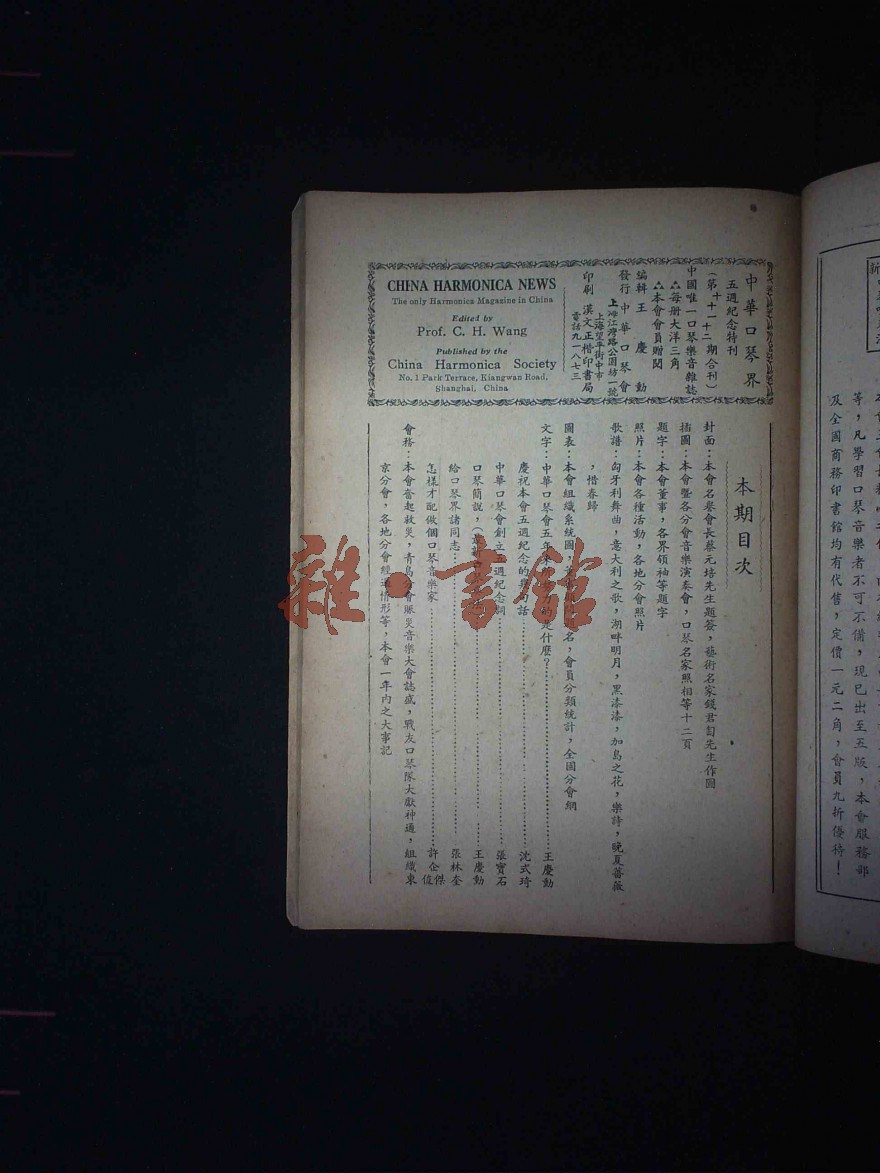 中華口琴界
五週紀念特刊
（第十一十二期合刊）
中國唯一口琴樂音雜誌
△每册大洋三角
△本會會員贈閱
編輯 王慶勳
發行 中華口琴會
上海江灣路公園坊一號
印刷 漢文正楷印書局
上海望平街中市
電話九一八七三
CHINA HARMONICA NEWS
The only Harmonica Magazine in China
Edited by
Prof. C. H. Wang
Published by the
China Harmonica Society
No. 1 Park Terrace, Kiangwan Road,
Shanghai, China
本期目次
封面：本會名譽會長蔡元培先生題簽，藝術名家錢君匋先生作圖
插圖：本會暨各分會音樂演奏會，口琴名家照相等十二頁
題字：本會董事，各界領袖等題字
照片：本會各種活動，各地分會照片
歌譜：匈牙利舞曲，意大利之歌，湖畔明月，黑漆漆，加島之花，樂詩，晚夏薔薇
，惜春歸
圖表：本會組織系統圖，名，會員分類統計，全國分會網
文字：中華口琴會五年來的是什麼？王慶勳
慶祝本會五週紀念的幾句話 沈式琦
中華口琴會創立五週紀念詞 張寶石
口琴簡說，王慶勳
給口琴界諸同志 張林奎
怎樣才配做個口琴音樂家 許企傑
會務：本會奮起救災，青島分會賑災音樂大會誌盛，戰友口琴隊大獻神通，組織東
京分會，各地分會經過情形等，本會一年內之大事記
等，凡學習口琴音樂者不可不備，現已出至五版，本會服務部
及全國商務印書館均有代售，定價一元二角，會員九折優待！
雜·書館